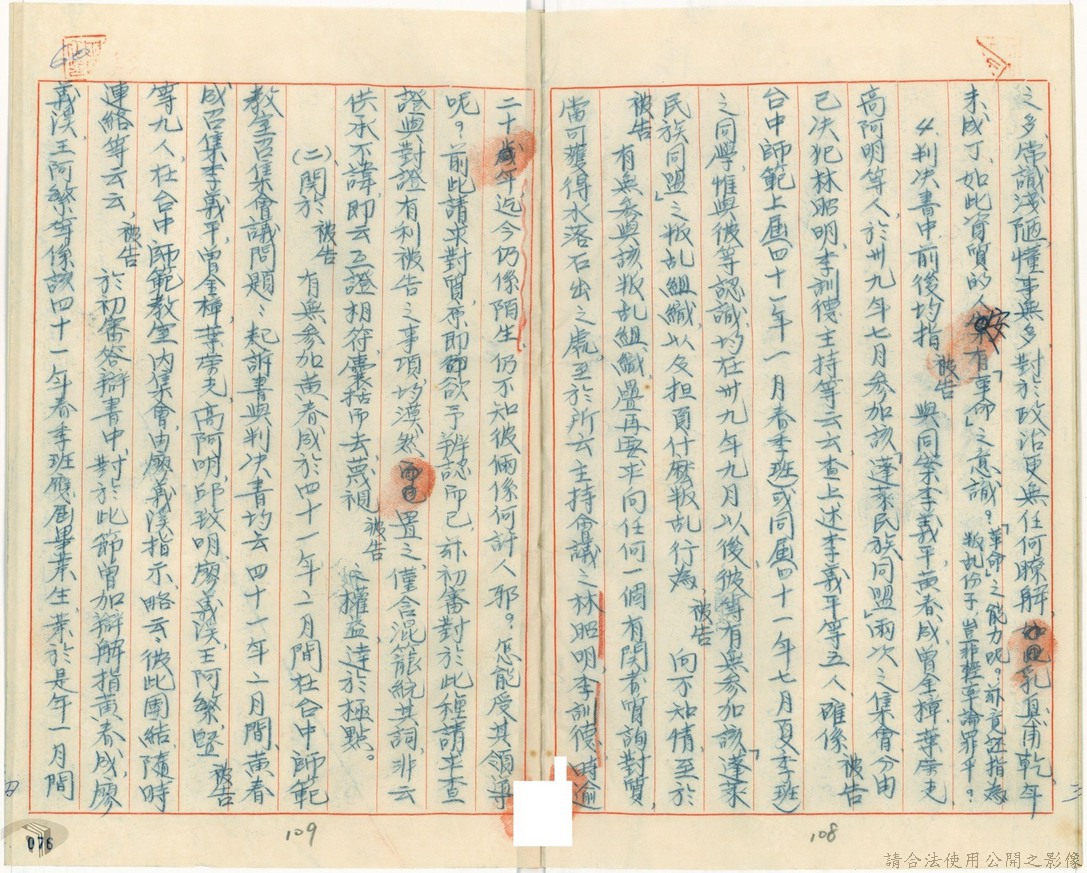 之多、常識淺陋、懂事無多、對於政治更無任何瞭解、乳臭甫乾、年
未成丁、如此資質的人、安有「革命」之意識?「革命」之能力呢。亦竟逕指為叛乱份子豈非輕率論罪乎?
4.判決書中前後均指被告與同案李義平黃春成曾金樟葉榮光
高阿明等人、於卅九年七月參加該「蓬萊民族同盟」兩次之集會、分由
已決犯林昭明、李訓德、主持等云云查上述李義平等五人、雖係被告
台中師範上届四十一年一月春季班或同届四十一年七月夏季班
之同學、惟與彼等認識、均在卅九年九月以後彼等有無參加該「蓬萊
民族同盟」之叛乱組織、以及担負什麼叛乱行為、被告向不知情、至於
被告有無參與該叛乱組織疊再要求向任何一個有関者質詢對質、
當可獲得水落石出之處、至於所云主持會議之林昭明李訓德、時逾
二十歲年迄今仍係陌生、仍不知彼倆係何許人耶?怎能受其領導
呢?前此請求對質、原即欲予辨認而已、亦初審對於此種請求查
證與對證有利被告之事項、均漠然置之、僅含混籠統其詞、非云
供承不諱、即云互證相符、囊括而去蔑視被告之權益、達於極點。
(二)関於被告有無參加黃春成於四十一年二月間在台中師範
教室召集會議問題:起訴書與判決書均云四十一年二月間、黃春
成召集李義平、曾金樟、葉榮光、高阿明、邱致明、廖義溪、王阿繁暨被告
等九人、在台中師範教室內集會、由廖義溪指示、略云:彼此團結、隨時
連絡等云云、被告於初審答辯書中、對於此節曾加辯解指黃春成、廖
義溪、王阿繁等係該四十一年春季班應屆畢業生、業於是年一月間
109
108
076
請合法使用公開之影像